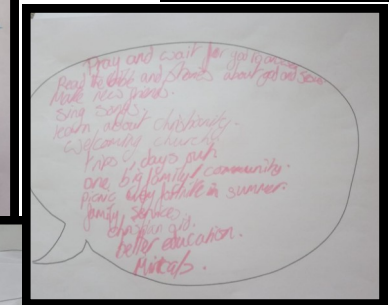 Pray and wait for god to answer
Read the bible and stories about god and Jesus
Make new friends.
Sing songs.
learn about christianity.
welcoming church
trips / days out
one big family / community.
picnic every in summer.
family services
god.
better education.